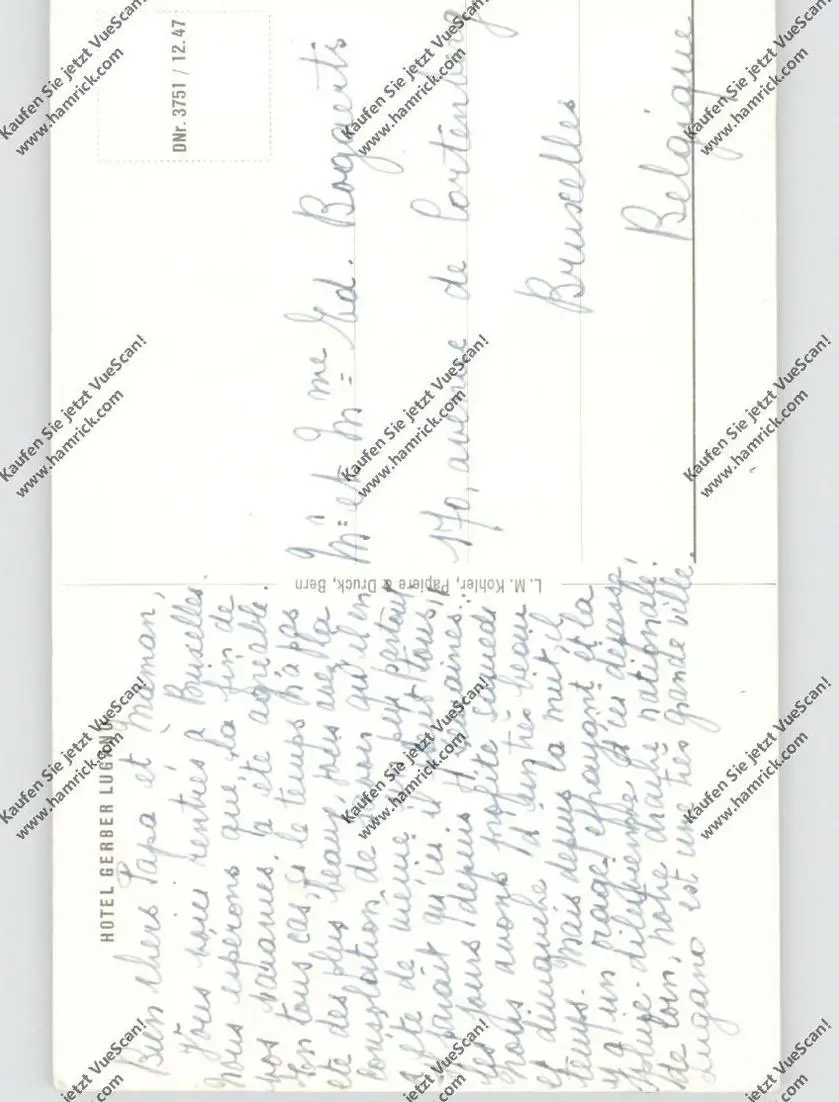 HOTEL GERBER LUGANO
Bien chers Papa et Maman,
Vous voici rentrés à Bruxelles
nous espérons que la fin de
vos vacances a été agréable.
En tous cas, le temps n'a pas
été des plus beaux mais avec la
consolation de qu'il en
a été de même un peu partout
Il parait qu'ici il pleut tous
les jours depuis semaines.
nous avons profité samedi
et dimanche d'un très beau
temps. Mais depuis la nuit il
y a un orage effrayant et la
pluie diluvienne d'ici dépasse,
de loin, notre drache nationale!
Lugano est une très grande ville.
L. M. Kohler, Papiere & Druck, Bern
DNr. 3751 / 12.47
Mr et Mme Ed. Bogaerts
170, avenue de Cortenberg
Bruxelles
Belgique
Kaufen Sie jetzt VueScan!
www.hamrick.com